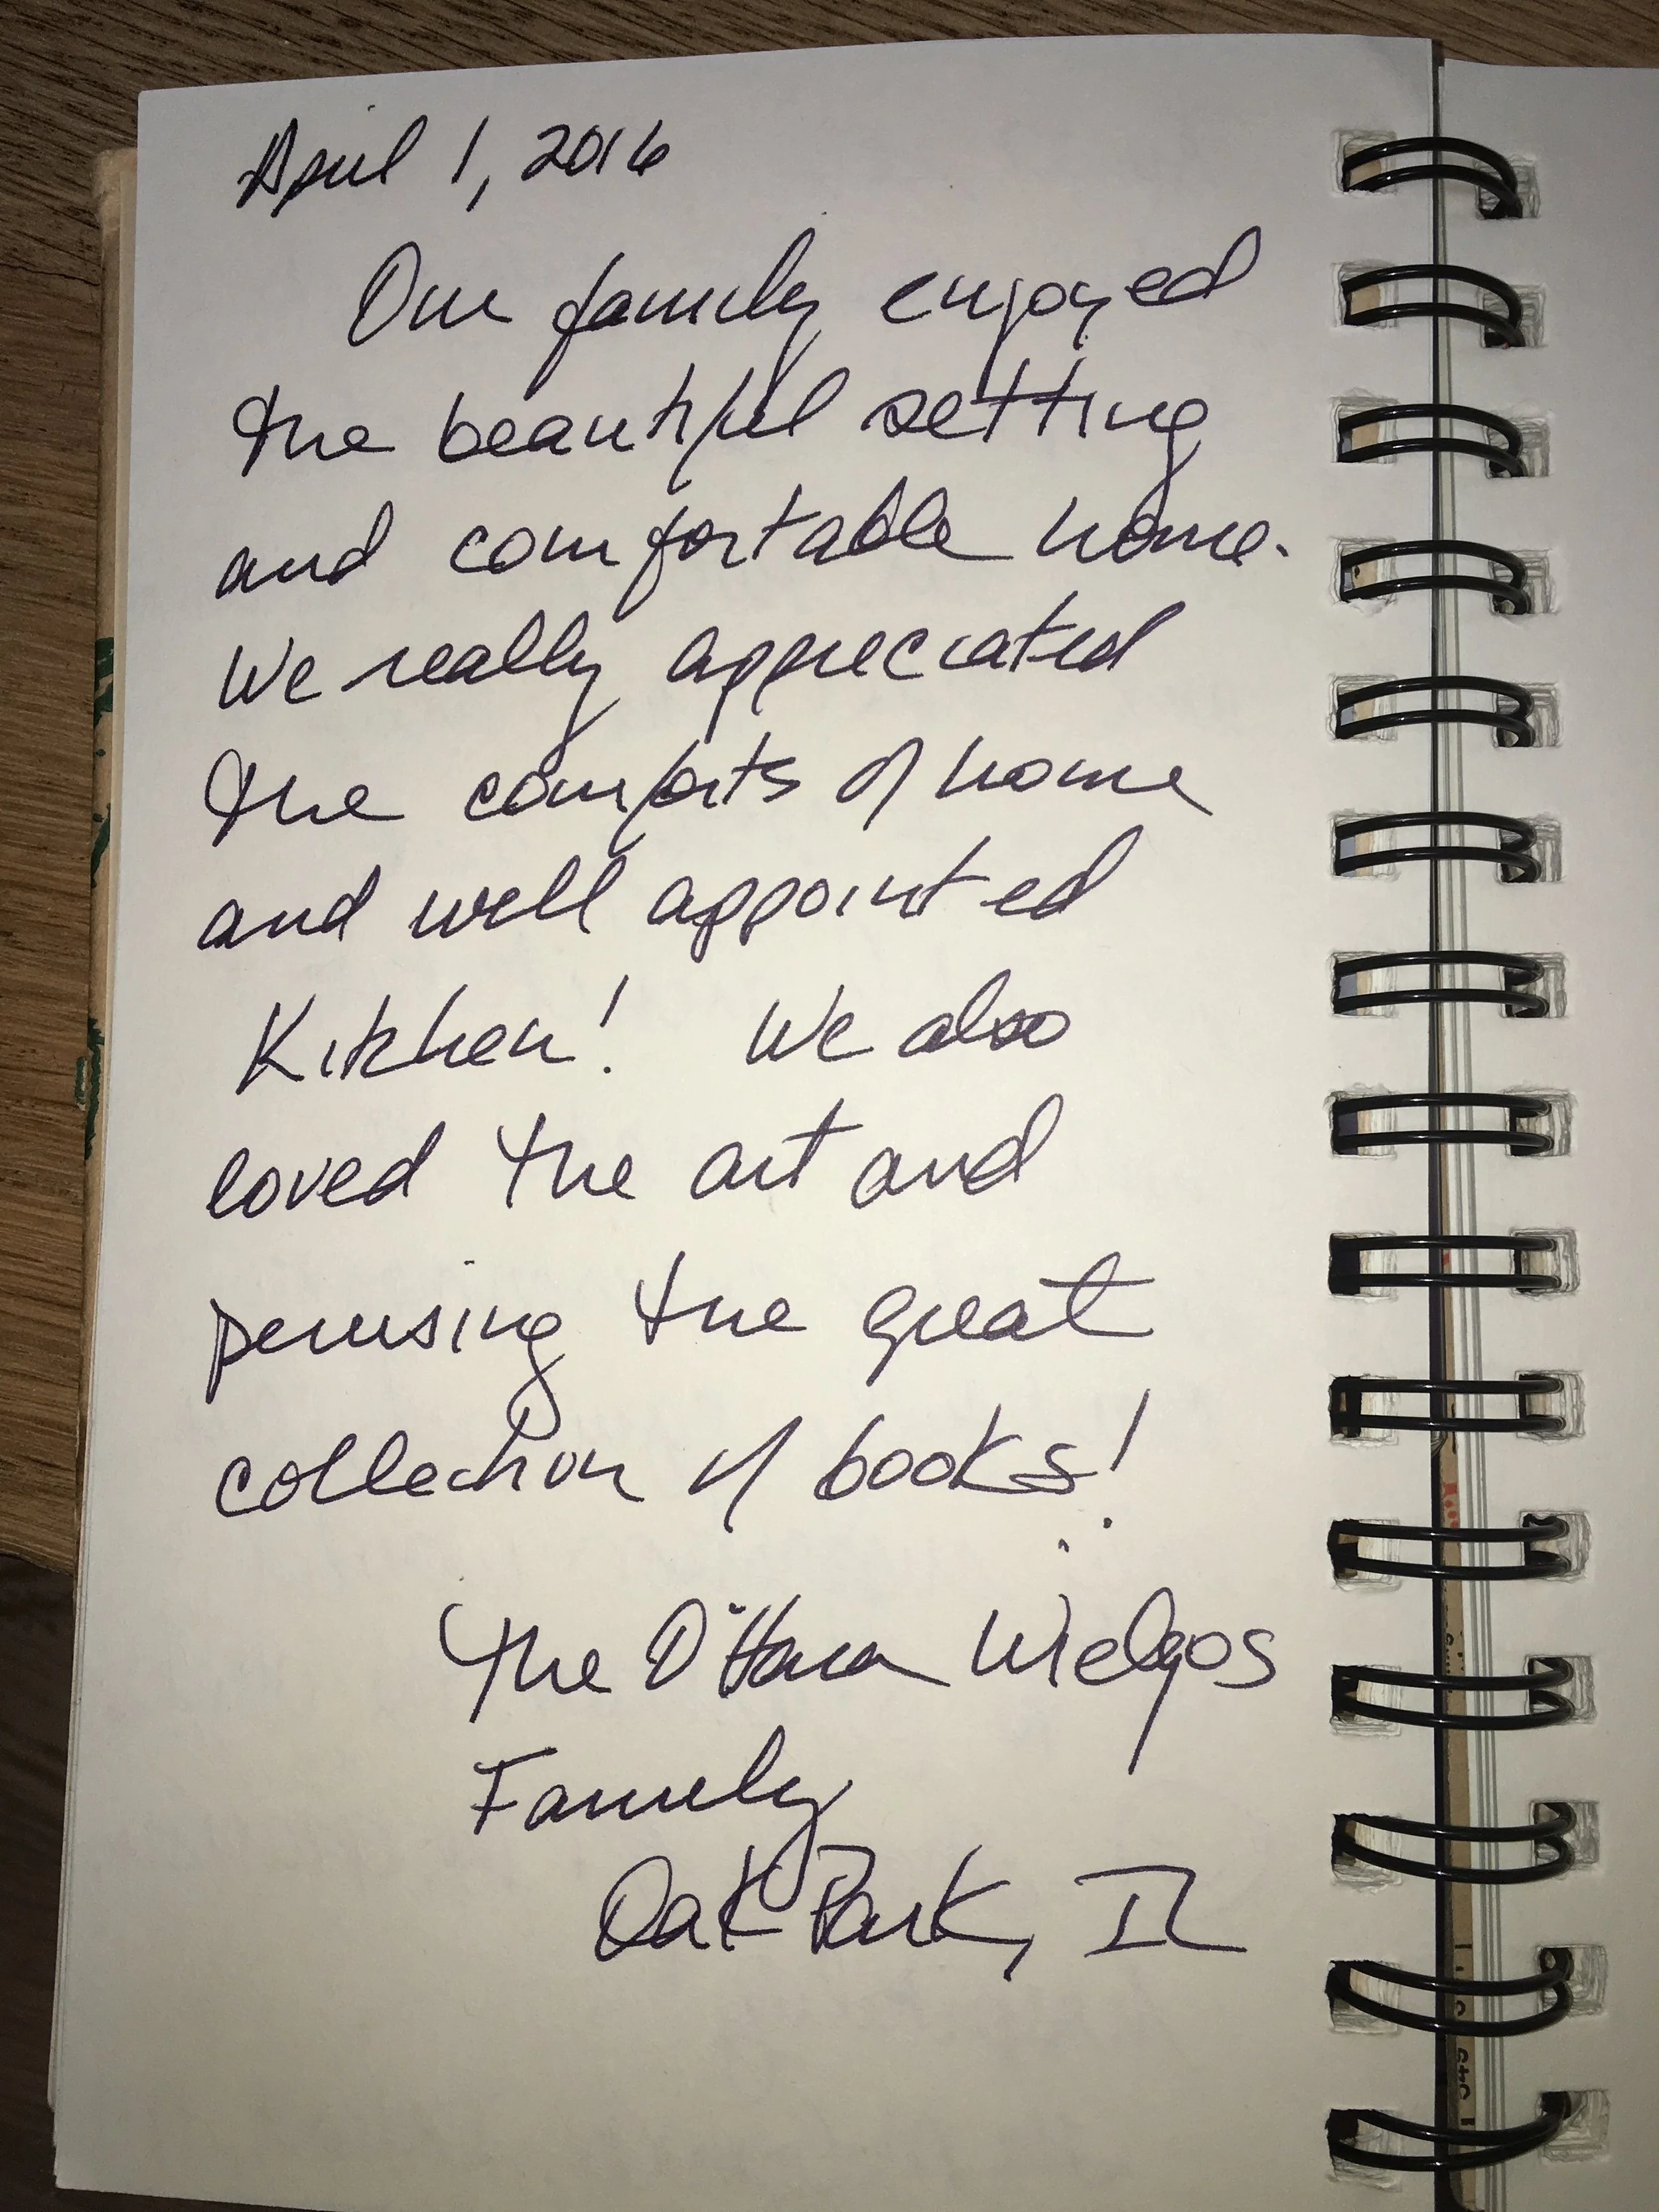 April 1, 2016
Our family enjoyed
the beautiful setting
and comfortable home.
We really appreciated
the comforts of home
and well appointed
Kitchen! We also
loved the art and
perusing the great
collection of books!
The Wielgos
Family
Oak Park, IL